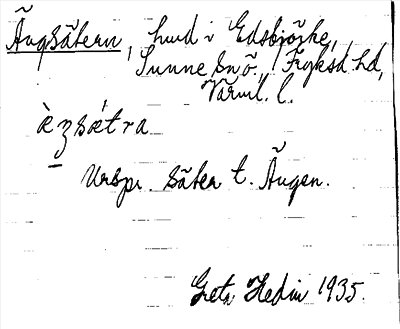 Ängsätern, hmd i Edsbjörke,
Sunne sn ö., Fryksd. hd,
Värml. l.
Urspr. säter t. Ängen.
Greta Hedin 1935.